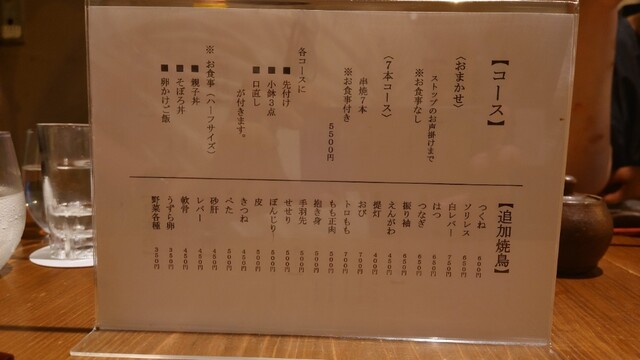 【コース】
〈おまかせ〉
ストップのお声掛けまで
※お食事なし
〈7本コース〉
串焼7本
※お食事付き
5500円
各コースに
■先付け
■小鉢3点
■口直し
が付きます。
※お食事（ハーフサイズ）
■親子丼
■そぼろ丼
■卵かけご飯
【追加焼鳥】
つくね 600円
ソリレス 650円
白レバー 750円
はつ 650円
つなぎ 650円
振り袖 650円
えんがわ 450円
提灯 400円
おび 700円
トロもも 700円
もも正肉 500円
抱き身 500円
手羽先 500円
せせり 500円
ぼんじり 500円
皮 500円
きつね 450円
べた 500円
砂肝 450円
レバー 450円
軟骨 450円
うずら卵 350円
野菜各種 350円